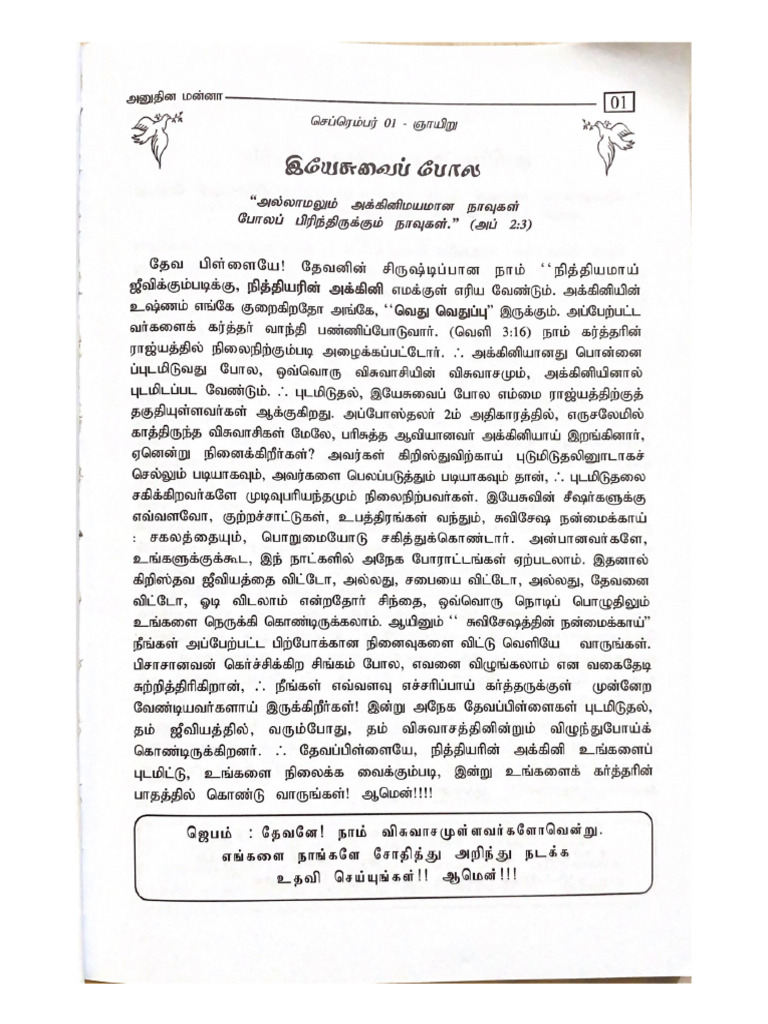 அனுதின மன்னா
01
செப்ரெம்பர் 01 - ஞாயிறு
இயேசுவைப் போல
“அல்லாமலும் அக்கினிமயமான நாவுகள்
போலப் பிரிந்திருக்கும் நாவுகள்.” (அப் 2:3)
தேவ பிள்ளையே! தேவனின் சிருஷ்டிப்பான நாம் ‘‘நித்தியமாய்
ஜீவிக்கும்படிக்கு, நித்தியரின் அக்கினி எமக்குள் எரிய வேண்டும். அக்கினியின்
உஷ்ணம் எங்கே குறைகிறதோ அங்கே, ‘‘வெது வெதுப்பு” இருக்கும். அப்பேற்பட்ட
வர்களைக் கர்த்தர் வாந்தி பண்ணிப்போடுவார். (வெளி 3:16) நாம் கர்த்தரின்
ராஜ்யத்தில் நிலைநிற்கும்படி அழைக்கப்பட்டோர். ∴ அக்கினியானது பொன்னை
ப்புடமிடுவது போல, ஒவ்வொரு விசுவாசியின் விசுவாசமும், அக்கினியினால்
புடமிடப்பட வேண்டும். ∴ புடமிடுதல், இயேசுவைப் போல எம்மை ராஜ்யத்திற்குத்
தகுதியுள்ளவர்கள் ஆக்குகிறது. அப்போஸ்தலர் 2ம் அதிகாரத்தில், எருசலேமில்
காத்திருந்த விசுவாசிகள் மேலே, பரிசுத்த ஆவியானவர் அக்கினியாய் இறங்கினார்,
ஏனென்று நினைக்கிறீர்கள்? அவர்கள் கிறிஸ்துவிற்காய் புடுமிடுதலினூடாகச்
செல்லும் படியாகவும், அவர்களை பெலப்படுத்தும் படியாகவும் தான், ∴ புடமிடுதலை
சகிக்கிறவர்களே முடிவுபரியந்தமும் நிலைநிற்பவர்கள். இயேசுவின் சீஷர்களுக்கு
எவ்வளவோ, குற்றச்சாட்டுகள், உபத்திரங்கள் வந்தும், சுவிசேஷ நன்மைக்காய்
: சகலத்தையும், பொறுமையோடு சகித்துக்கொண்டார். அன்பானவர்களே,
உங்களுக்குக்கூட, இந் நாட்களில் அநேக போராட்டங்கள் ஏற்படலாம். இதனால்
கிறிஸ்தவ ஜீவியத்தை விட்டோ, அல்லது, சபையை விட்டோ, அல்லது, தேவனை
விட்டோ, ஓடி விடலாம் என்றதோர் சிந்தை, ஒவ்வொரு நொடிப் பொழுதிலும்
உங்களை நெருக்கி கொண்டிருக்கலாம். ஆயினும் ‘‘ சுவிசேஷத்தின் நன்மைக்காய்”
நீங்கள் அப்பேற்பட்ட பிற்போக்கான நினைவுகளை விட்டு வெளியே வாருங்கள்.
பிசாசானவன் கெர்ச்சிக்கிற சிங்கம் போல, எவனை விழுங்கலாம் என வகைதேடி
சுற்றித்திரிகிறான், ∴ நீங்கள் எவ்வளவு எச்சரிப்பாய் கர்த்தருக்குள் முன்னேற
வேண்டியவர்களாய் இருக்கிறீர்கள்! இன்று அநேக தேவப்பிள்ளைகள் புடமிடுதல்,
தம் ஜீவியத்தில், வரும்போது, தம் விசுவாசத்தினின்றும் விழுந்துபோய்க்
கொண்டிருக்கிறனர். ∴ தேவப்பிள்ளையே, நித்தியரின் அக்கினி உங்களைப்
புடமிட்டு, உங்களை நிலைக்க வைக்கும்படி, இன்று உங்களைக் கர்த்தரின்
பாதத்தில் கொண்டு வாருங்கள்! ஆமென்!!!!
ஜெபம் : தேவனே! நாம் விசுவாசமுள்ளவர்களோவென்று.
எங்களை நாங்களே சோதித்து அறிந்து நடக்க
உதவி செய்யுங்கள்!! ஆமென்!!!